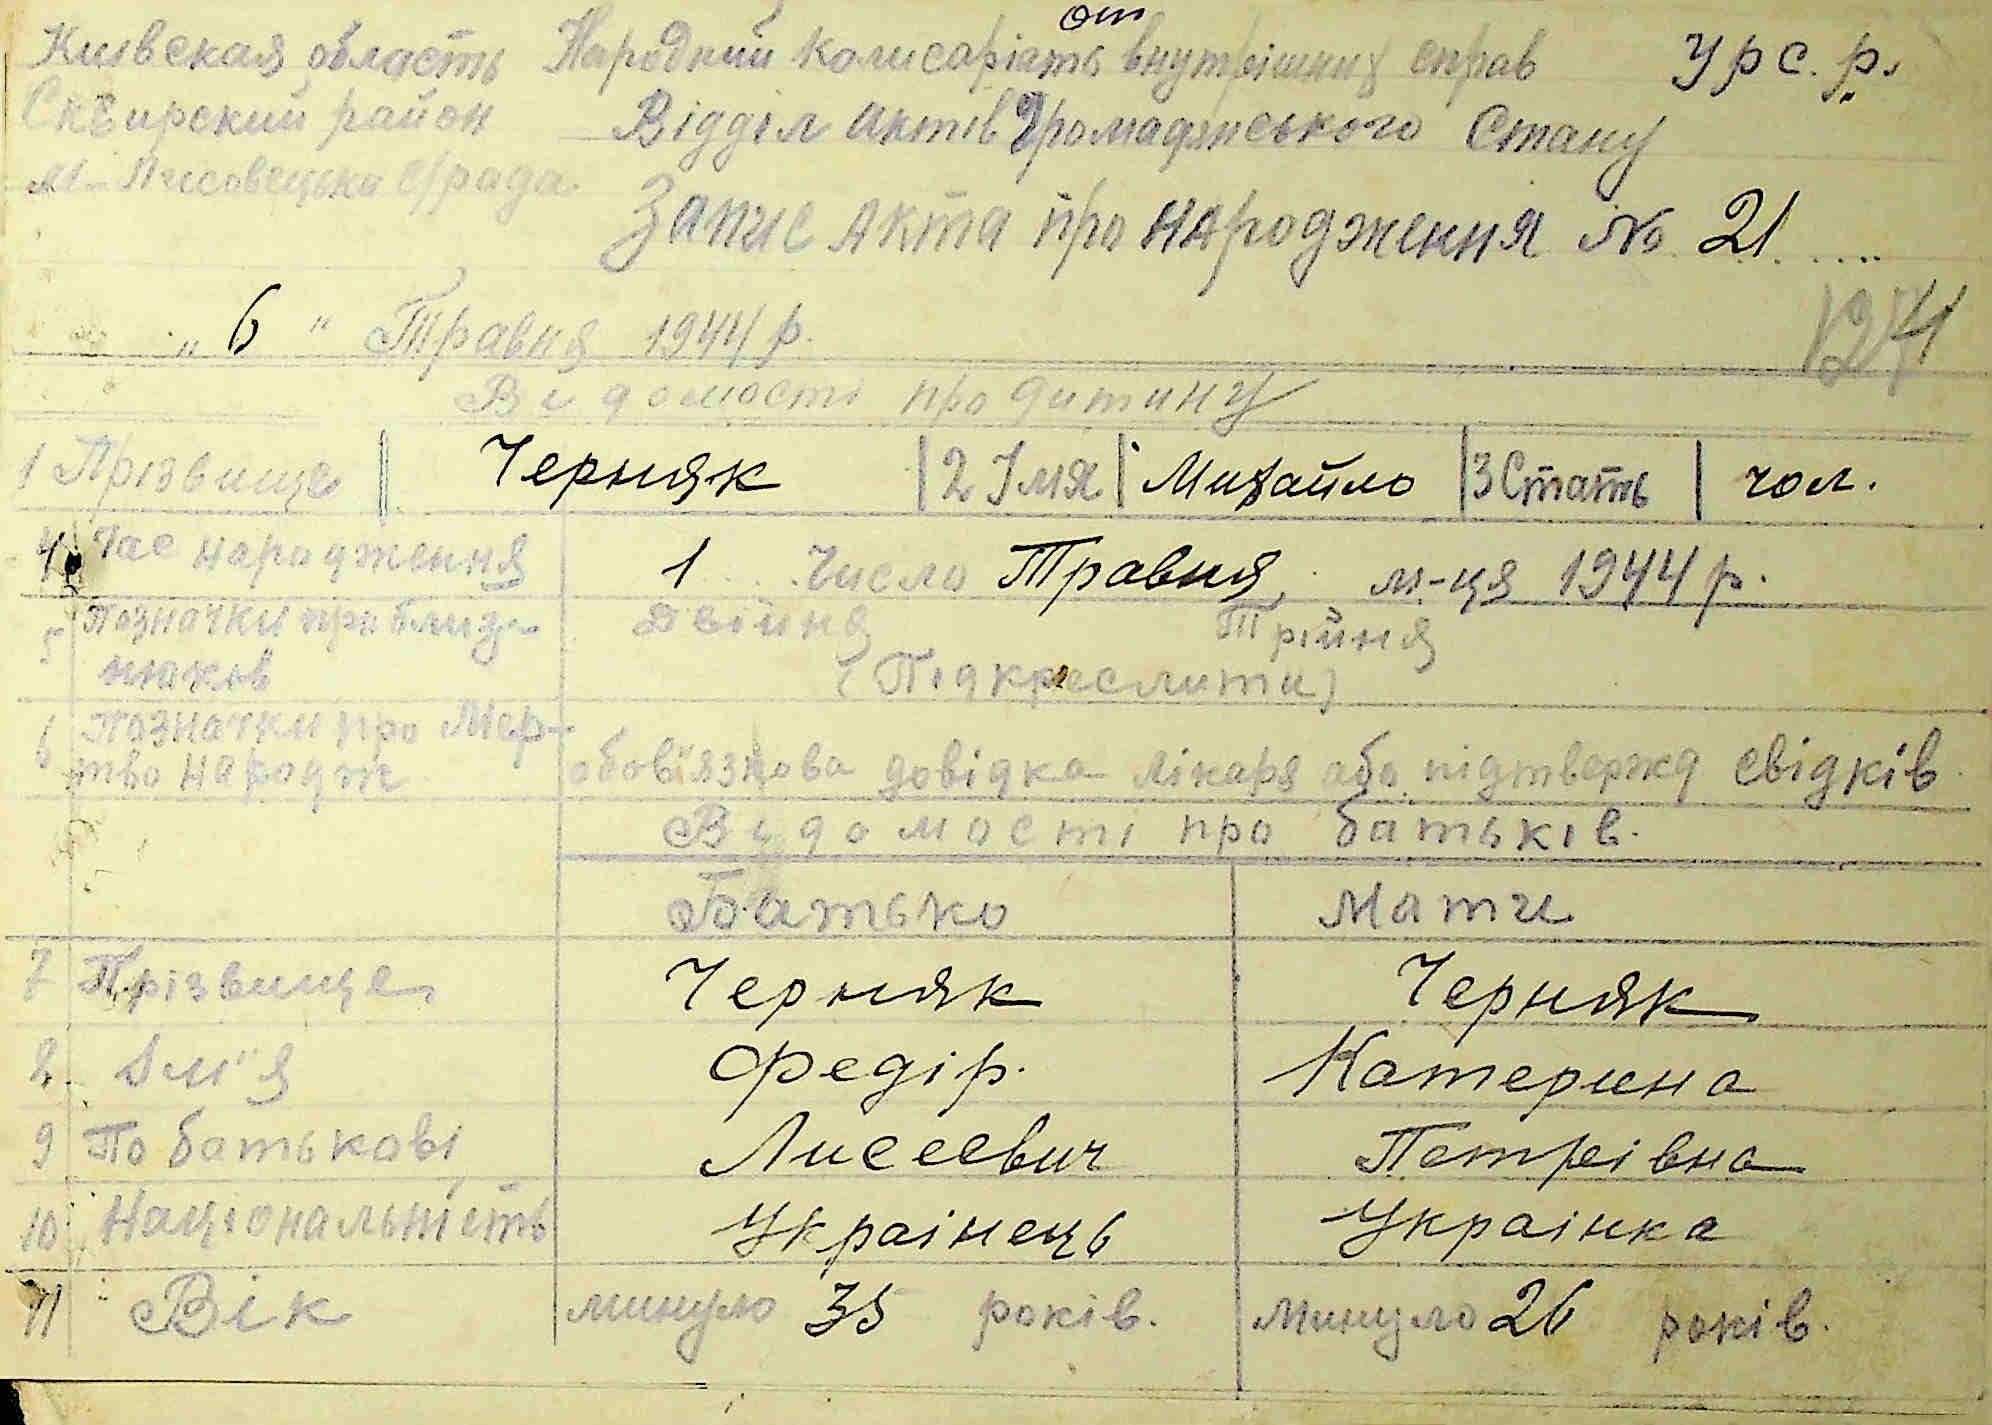 от
Киівская область Народний Комисаріать внутрішних справ УРС.Р.
Сквирский район Відділ Актів Громадянського Стану
М-Лисовецька с/рада
Запис Акта про народження № 21
"6" Травня 1944 р.
1271
Відомості про дитину
1 Прізвище Черняк 2 Імя Михайло 3 Стать чол.
4 Час народження 1 число Травня м-ця 1944 р.
5 Позначки про близ- двійня Трійня
нюков (Підкреслити)
6 Позначки про Мер-
тво народж обов'язкова довідка лікаря або підтвержд свідків
Відомості про батьків.
Батько Мати
7 Прізвище Черняк Черняк
8 Ім"я Федір. Катерина
9 По батькові Лисеевич Петрівна
10 Національність Украінець Украінка
11 Вік минуло 35 років. минуло 26 років.